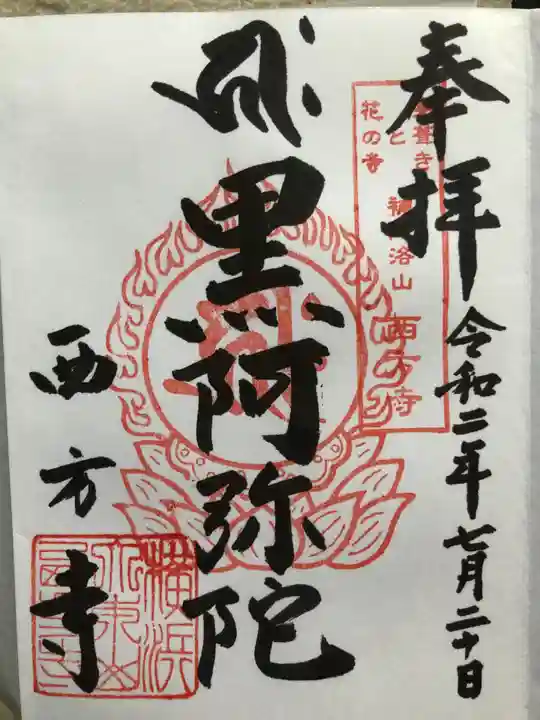 奉拝
茅葺き
と
花の寺
補陀洛山
西方寺
令和二年七月二十日
黒阿弥陀
西方寺
横浜